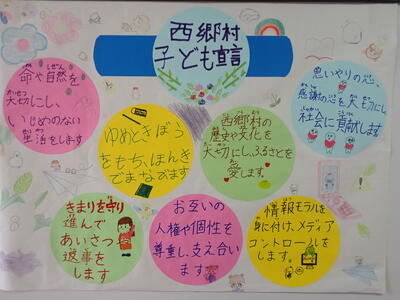 西郷村
子ども宣言
命や自然を
大切にし、
いじめのない
生活をします
ゆめときぼう
をもち、ほんき
でまなびます
西郷村の
歴史や文化を
大切にし、ふるさとを
愛します。
思いやりの心、
感謝の心を大切にし、
社会に貢献します
きまりを守り
進んで
あいさつ
返事を
します
お互いの
人権や個性を
尊重し、支え合い
ます
情報モラルを
身に付け、メディア
コントロールを
します。